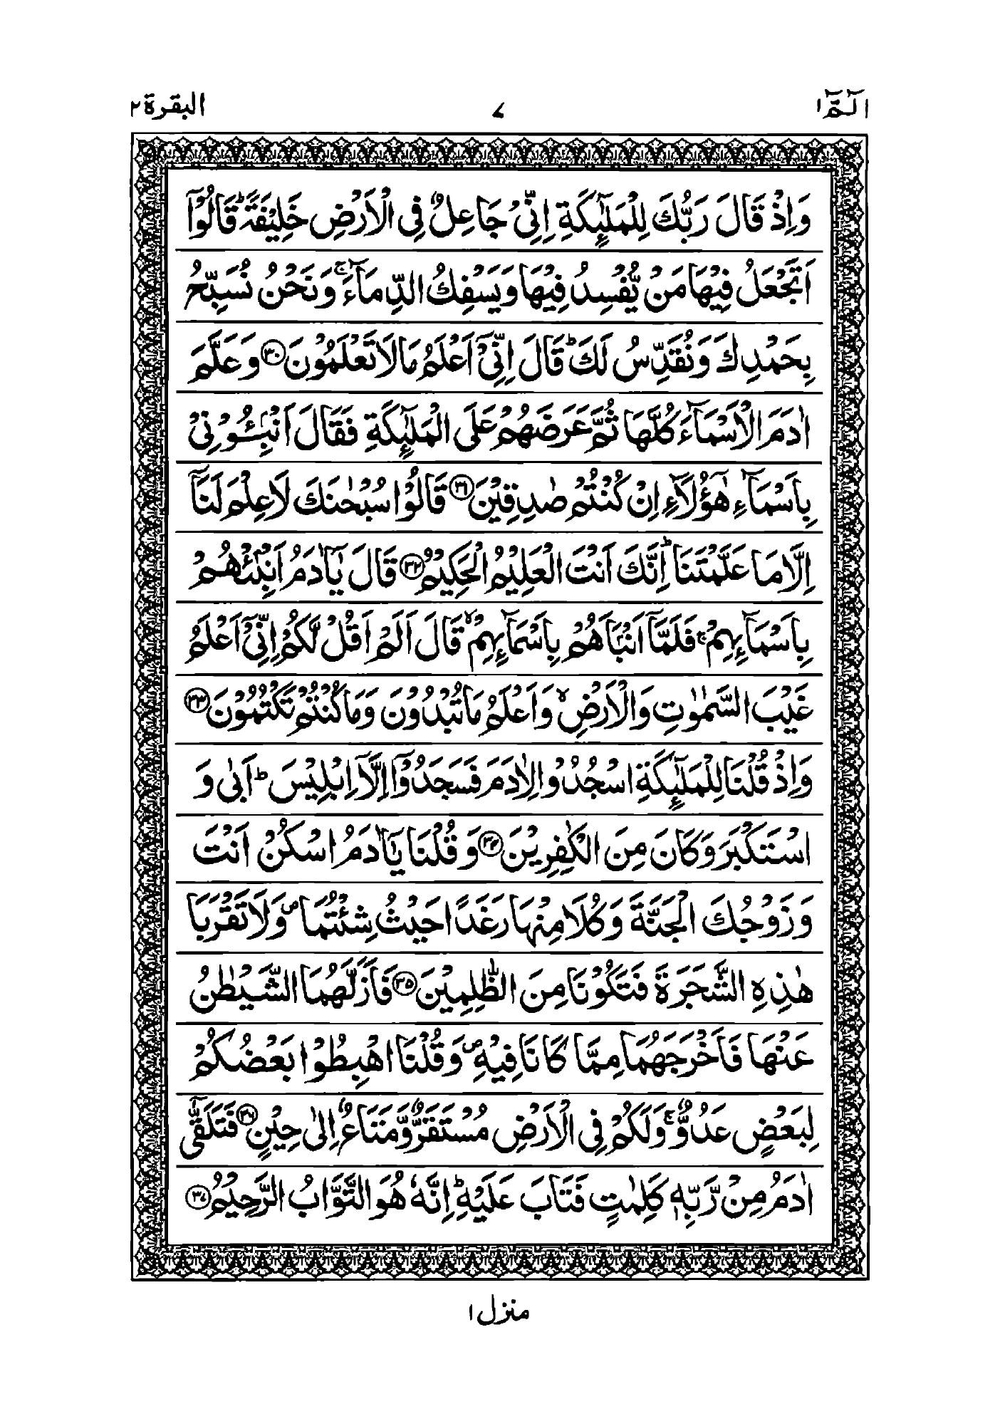 الٓمّٓ ١
٧
البقرة ٢
وَاِذْ قَالَ رَبُّكَ لِلْمَلٰٓئِكَةِ اِنِّیْ جَاعِلٌ فِی الْاَرْضِ خَلِیْفَةً ؕ قَالُوْۤا
اَتَجْعَلُ فِیْهَا مَنْ یُّفْسِدُ فِیْهَا وَیَسْفِكُ الدِّمَآءَ ۚ وَنَحْنُ نُسَبِّحُ
بِحَمْدِكَ وَنُقَدِّسُ لَكَ ؕ قَالَ اِنِّیْۤ اَعْلَمُ مَا لَا تَعْلَمُوْنَ ﴿۳۰﴾ وَعَلَّمَ
اٰدَمَ الْاَسْمَآءَ كُلَّهَا ثُمَّ عَرَضَهُمْ عَلَی الْمَلٰٓئِكَةِ فَقَالَ اَنْۢبِـُٔوْنِیْ
بِاَسْمَآءِ هٰۤؤُلَآءِ اِنْ كُنْتُمْ صٰدِقِیْنَ ﴿۳۱﴾ قَالُوْا سُبْحٰنَكَ لَا عِلْمَ لَنَاۤ
اِلَّا مَا عَلَّمْتَنَا ؕ اِنَّكَ اَنْتَ الْعَلِیْمُ الْحَكِیْمُ ﴿۳۲﴾ قَالَ یٰۤاٰدَمُ اَنْۢبِئْهُمْ
بِاَسْمَآىِٕهِمْ ۚ فَلَمَّاۤ اَنْۢبَاَهُمْ بِاَسْمَآىِٕهِمْ ۙ قَالَ اَلَمْ اَقُلْ لَّكُمْ اِنِّیْۤ اَعْلَمُ
غَیْبَ السَّمٰوٰتِ وَالْاَرْضِ ۙ وَاَعْلَمُ مَا تُبْدُوْنَ وَمَا كُنْتُمْ تَكْتُمُوْنَ ﴿۳۳﴾
وَاِذْ قُلْنَا لِلْمَلٰٓئِكَةِ اسْجُدُوْا لِاٰدَمَ فَسَجَدُوْۤا اِلَّاۤ اِبْلِیْسَ ؕ اَبٰی وَ
اسْتَكْبَرَ وَكَانَ مِنَ الْكٰفِرِیْنَ ﴿۳۴﴾ وَقُلْنَا یٰۤاٰدَمُ اسْكُنْ اَنْتَ
وَزَوْجُكَ الْجَنَّةَ وَكُلَا مِنْهَا رَغَدًا حَیْثُ شِئْتُمَا ۪ وَلَا تَقْرَبَا
هٰذِهِ الشَّجَرَةَ فَتَكُوْنَا مِنَ الظّٰلِمِیْنَ ﴿۳۵﴾ فَاَزَلَّهُمَا الشَّیْطٰنُ
عَنْهَا فَاَخْرَجَهُمَا مِمَّا كَانَا فِیْهِ ۪ وَقُلْنَا اهْبِطُوْا بَعْضُكُمْ
لِبَعْضٍ عَدُوٌّ ۚ وَلَكُمْ فِی الْاَرْضِ مُسْتَقَرٌّ وَّمَتَاعٌ اِلٰی حِیْنٍ ﴿۳۶﴾ فَتَلَقّٰۤی
اٰدَمُ مِنْ رَّبِّهٖ كَلِمٰتٍ فَتَابَ عَلَیْهِ ؕ اِنَّهٗ هُوَ التَّوَّابُ الرَّحِیْمُ ﴿۳۷﴾
منزل ١